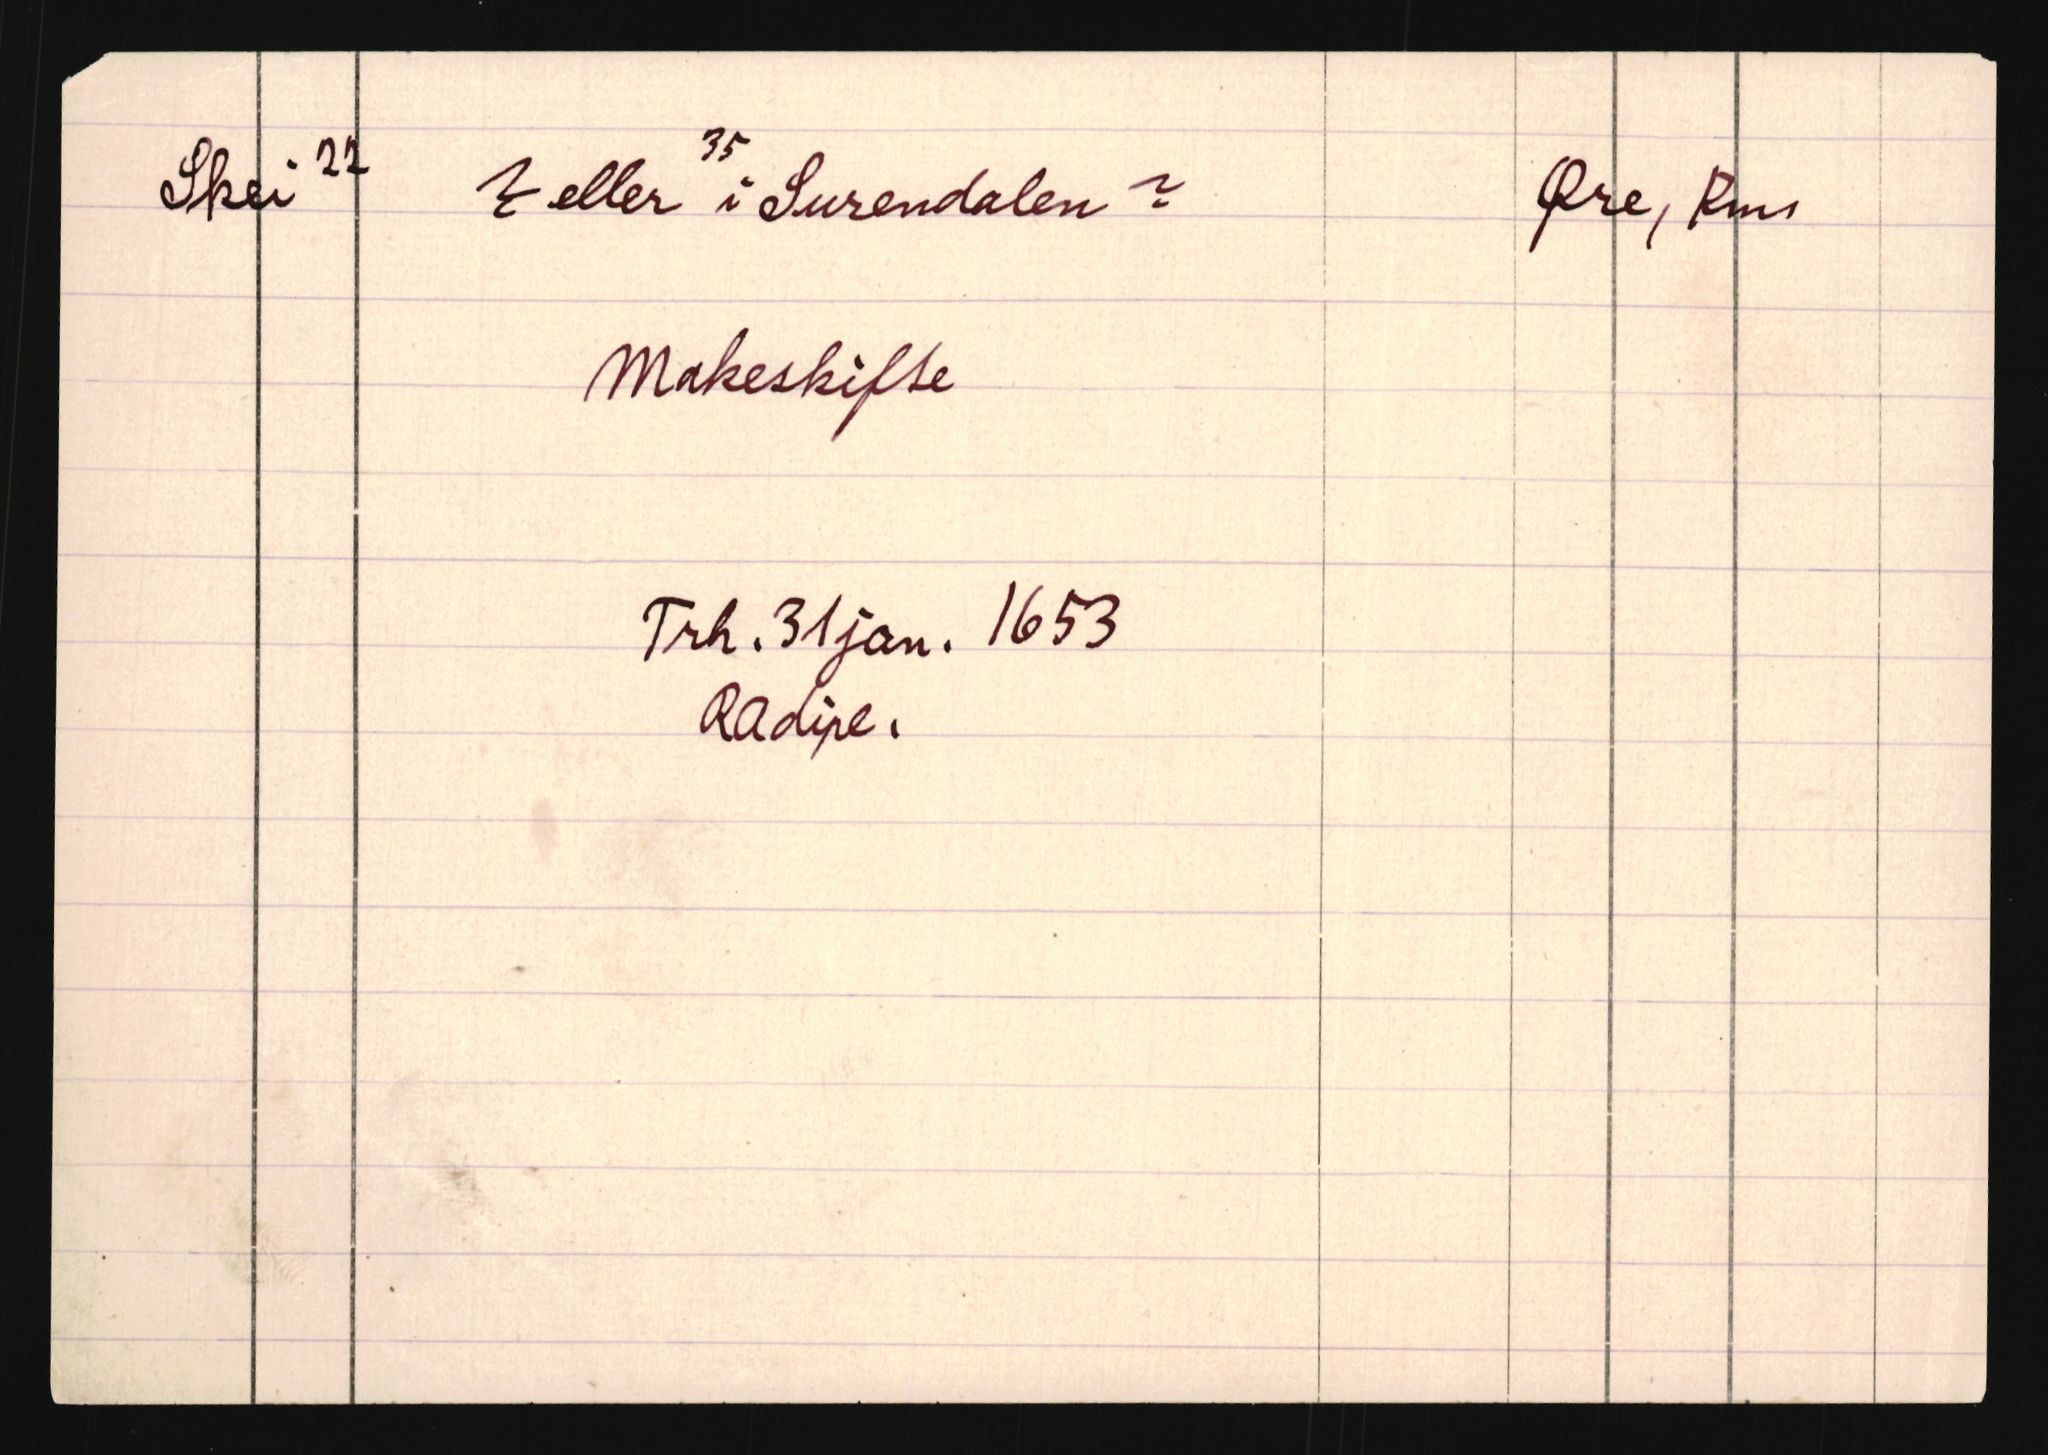 Skei 22 ? eller 35 i Surendalen ? Øre, Rms
Makeskifte
Trh. 31 jan. 1653
RAdipl.